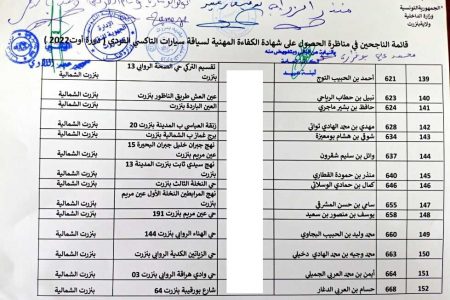 الجمهورية التونسية
وزارة الداخلية
ولاية بنزرت
قائمة الناجحين في مناظرة الحصول على شهادة الكفاءة المهنية لسياقة سيارات التاكسي الفردي ( دورة أوت 2022 )
139 621 أحمد بن الحبيب التوج تقسيم التركي حي الصحة الروابي 13 بنزرت بنزرت الشمالية
140 623 نبيل بن حطاب الرياحي عين العش طريق الناظور بنزرت بنزرت الشمالية
141 624 حافظ بن بشير ماجري العين الباردة بنزرت بنزرت الشمالية
142 628 مهدي بن محمد الهادي تواتي زنقة العباسي ب المدينة بنزرت 20 بنزرت الشمالية
143 634 شوقي بن هشام بومعيزة برج غماز ب الشمالية بنزرت بنزرت الشمالية
144 637 وائل بن سليم شقرون نهج جبران خليل جبران البحيرة 15 عين مريم بنزرت بنزرت الشمالية
145 640 منذر بن حمودة القطاري نهج سيدي ثابت بنزرت المدينة 13 بنزرت بنزرت الشمالية
146 642 كمال بن حمادي الوسلاتي حي النخلة الثالث بنزرت بنزرت الشمالية
147 655 سامي بن حسن المشرقي نهج المرابطين النخلة الأول عين مريم بنزرت بنزرت الشمالية
148 658 يوسف بن منصور بن سعيد حي عين مريم بنزرت 191 بنزرت الشمالية
149 660 محمد وليد بن الحبيب البجاوي حي الهناء الروابي بنزرت 144 بنزرت الشمالية
150 663 محمد وجيه بن محمد الهادي دخيلي حي الزياتين الكدية الروابي بنزرت بنزرت الشمالية
151 664 أيمن بن محمد العربي الجميلي حي وادي هراقة الروابي بنزرت 03 بنزرت الشمالية
152 668 حسام بن العربي الدغار شارع بورقيبة بنزرت 64 بنزرت الشمالية